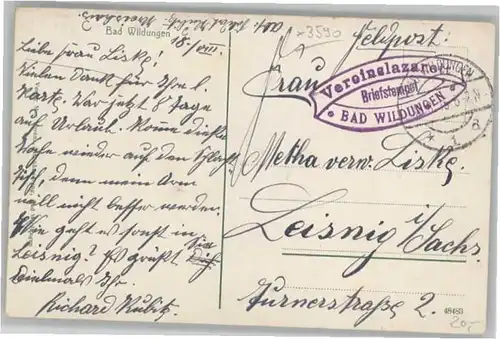 Bad Wildungen
18. VIII.
Liebe Frau Liske!
Vielen Dank für Ihre l.
Kart. War jetzt 8 Tage
auf Urlaub. Komme diese
Woche wieder auf den Schlacht
tisch, denn mein Arm
will nicht besser werden.
Wie geht es sonst in
Leisnig? Es grüßt Sie
vielmals Ihr
Richard Kubitz
x3590
Feldpost.
Frau
Vereinslazarett
Briefstempel
BAD WILDUNGEN
Metha verw. Liske.
Leisnig i/Sachs.
Turnerstraße 2.
48485
20,-